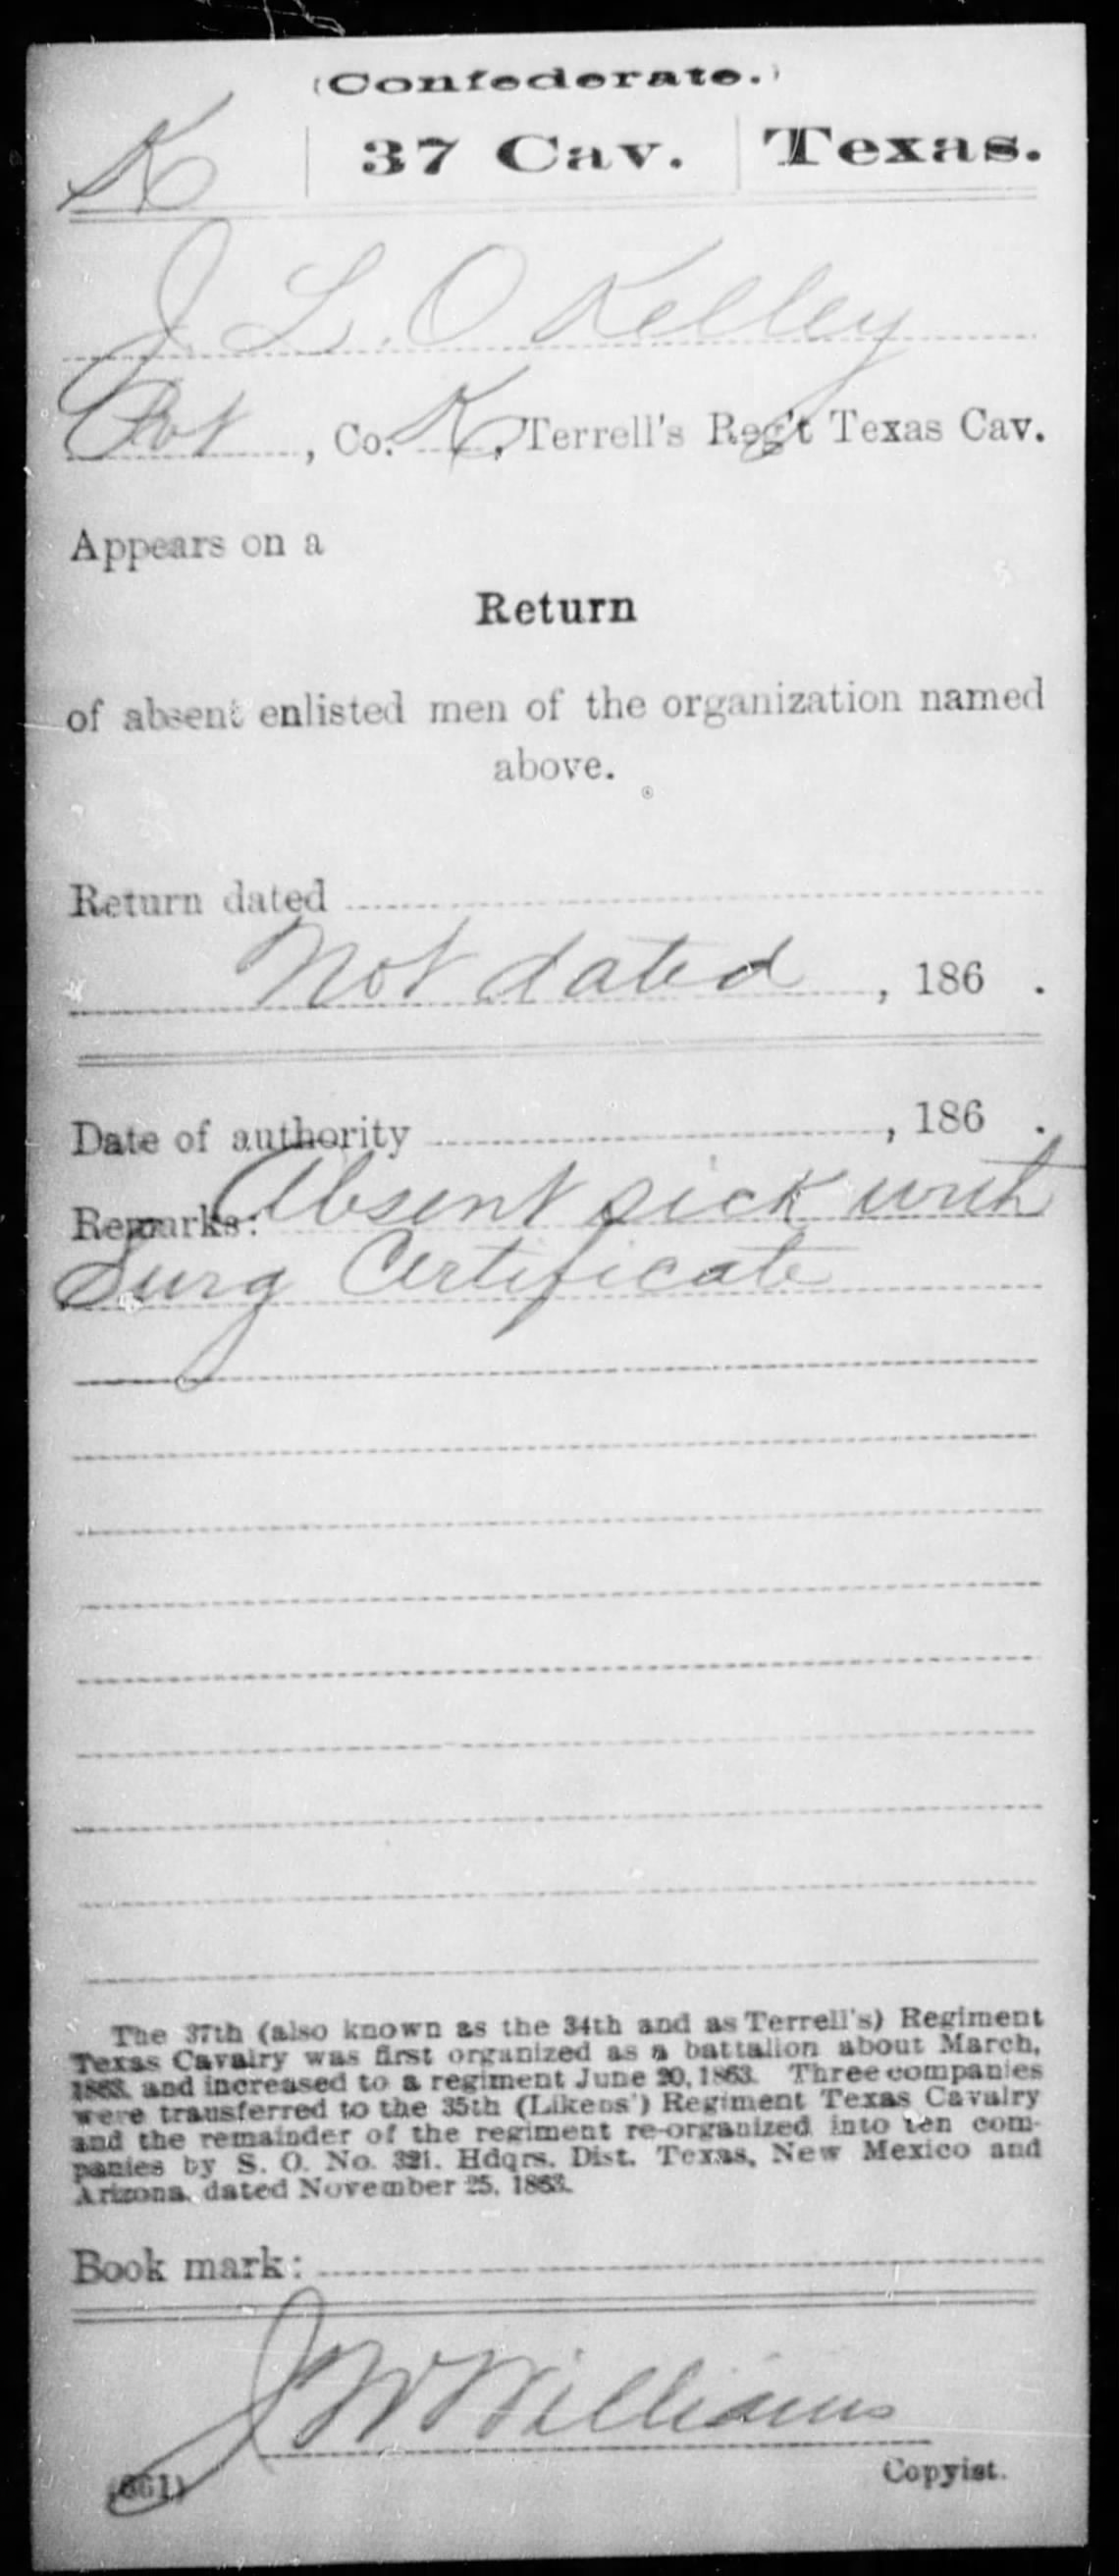 (Confederate.)
K | 37 Cav. | Texas.
J L. O Kelley
Pvt, Co. K, Terrell's Reg't Texas Cav.
Appears on a
Return
of absent enlisted men of the organization named
above.
Return dated
Not dated, 186 .
Date of authority , 186 .
Remarks: Absent sick with
Surg Certificate
The 37th (also known as the 34th and as Terrell's) Regiment
Texas Cavalry was first organized as a battalion about March,
1863, and increased to a regiment June 20, 1863. Three companies
were transferred to the 35th (Likens') Regiment Texas Cavalry
and the remainder of the regiment re-organized into ten com-
panies by S. O. No. 321, Hdqrs. Dist. Texas, New Mexico and
Arizona, dated November 25, 1863.
Book mark:
J W Williams
(661) Copyist.